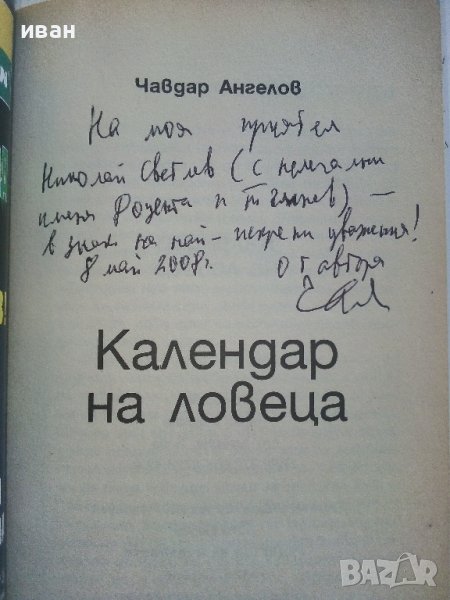 иван
Чавдар Ангелов
На моя приятел
Николай Светлев (с нелегални
имена Доцента и) —
в знак на най-искрени уважения!
8 май 2008г. от автора
Календар
на ловеца
BAZAR